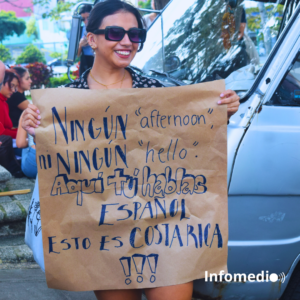 NINGÚN "afternoon",
ni NINGÚN "hello".
Aquí tú hablas
ESPAÑOL
ESTO ES COSTA RICA
!!!
Infomedio